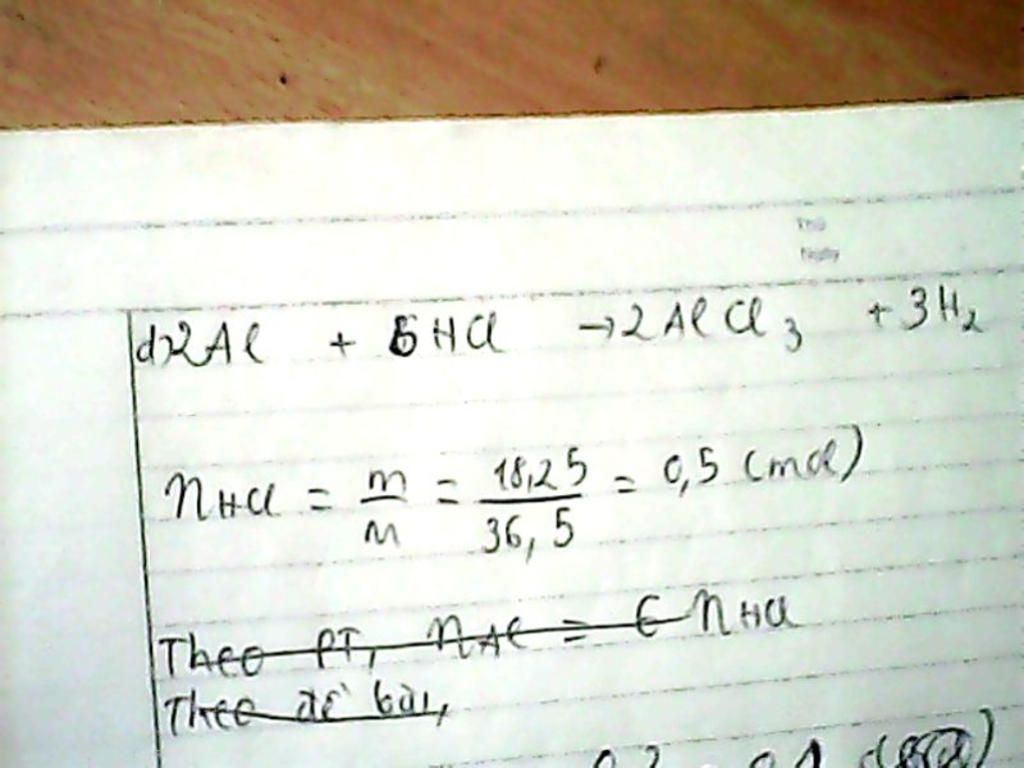 Thứ
Ngày
d) 2Al + 6HCl → 2AlCl3 + 3H2
nHCl = m/M = 18,25/36,5 = 0,5 (mol)
Theo PT, nAl = 6 nHCl
Theo đề bài,